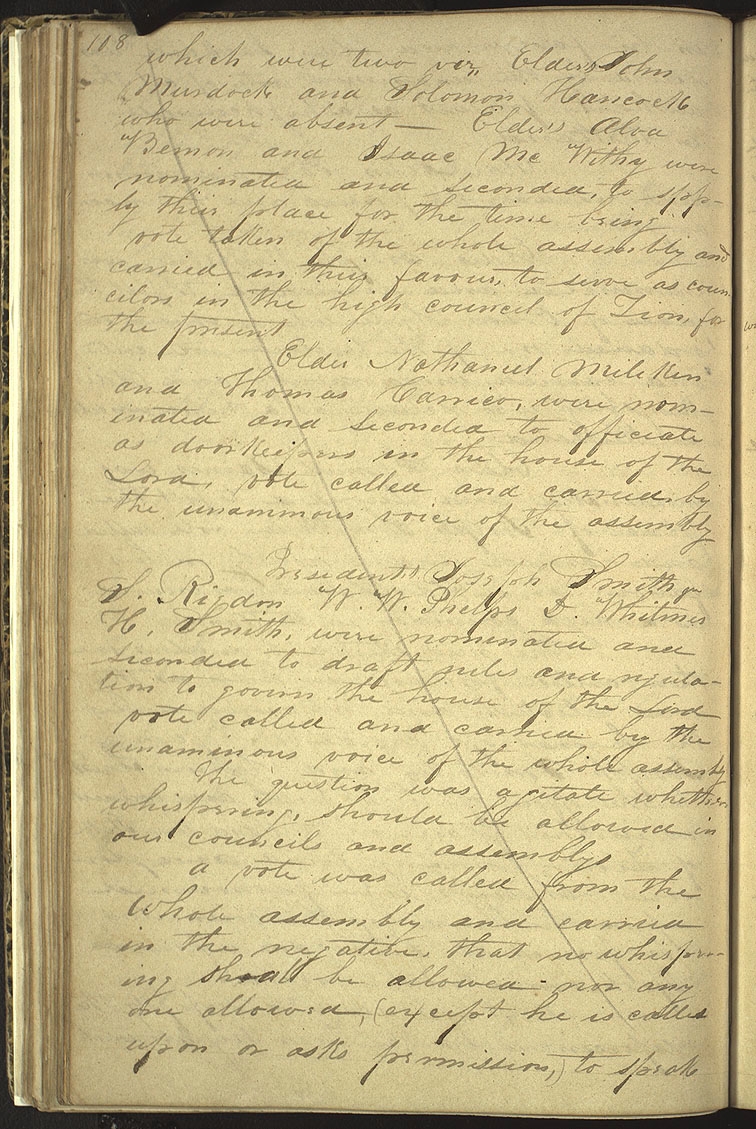 108
which were two viz,, Elders John
Murdock and Solomon Hancock
who were absent — Elder's Alva
Bemon and Isaac Mc Withy were
nominated and seconded, to spp-
ly their place for the time being
vote taken of the whole assembly and
carried in their favour, to serve as coun
cilors in the high council of Zion, for
the present
Elder Nathaniel Miliken
and Thomas Carrico, were nom-
inated and seconded to officiate
as doorkeepers in the house of the
Lord, vote called and carried, by
the unaminous voice of the assembly
Presidents Joseph Smith jr
S. Rigdon W. W. Phelps D. Whitmer
H. Smith, were nominated and
seconded to draft rules and regula-
tion to govern the house of the Lord
vote called and carried by the
unaminous voice of the whole assembly
The question was agitate whether
whispering, should be allowed in
our councils and assemblys
a vote was called from the
whole assembly and carried
in the negative, that no whisper-
ing shall be allowed - nor any
one allowed, (except he is called
upon or asks permission,) to speak